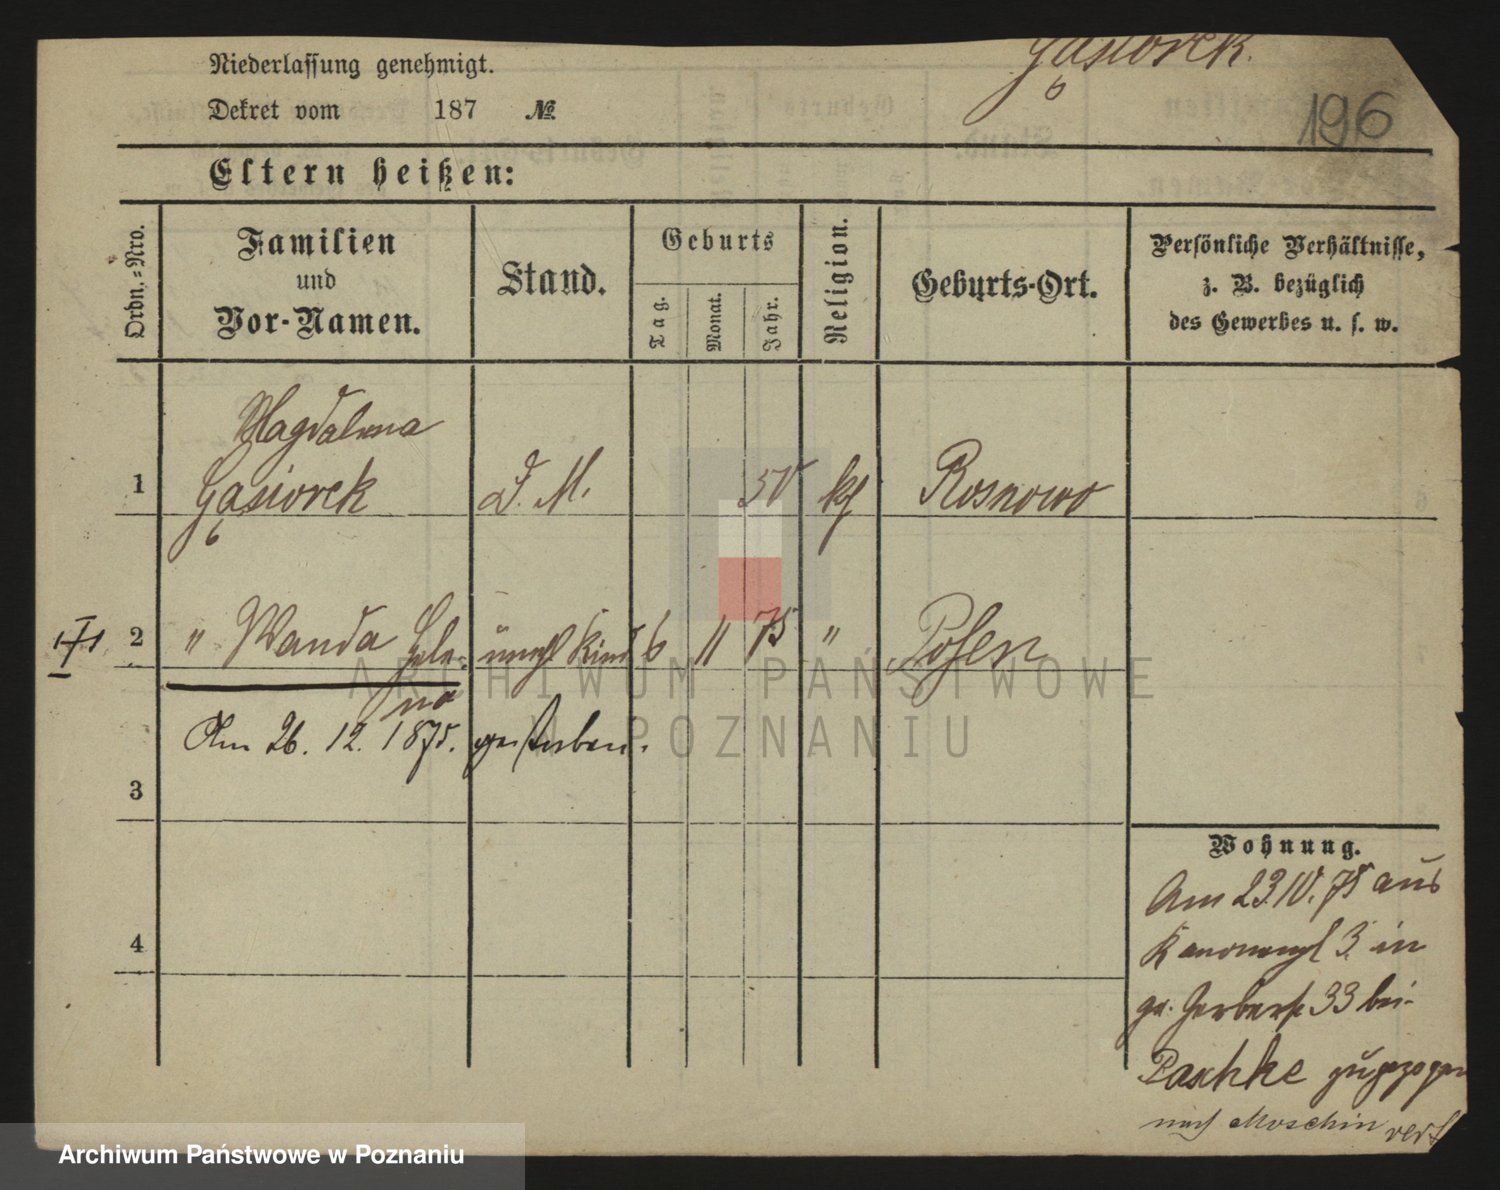 Niederlassung genehmigt.
Gąsiorek.
196
Dekret vom 187 №
Eltern heißen:
Ordn.-Nro.
Familien und Vor-Namen.
Stand.
Geburts
Tag.
Monat.
Jahr.
Religion.
Geburts-Ort.
Persönliche Verhältnisse,
z. B. bezüglich
des Gewerbes u. s. w.
Magdalena
1 Gąsiorek D. M. 50 kf Rosnowo
2 " Wanda Hele- unehl Kind 6 11 75 " Posen
na
Am 26. 12. 1875. gestorben.
3
4
Wohnung.
Am 23. IV. 75 aus
Kanonenpl 3. in
gr. Gerberst 33 bei
Paschke zugezogen
nach Moschin verz
ARCHIWUM PAŃSTWOWE
W POZNANIU
Archiwum Państwowe w Poznaniu